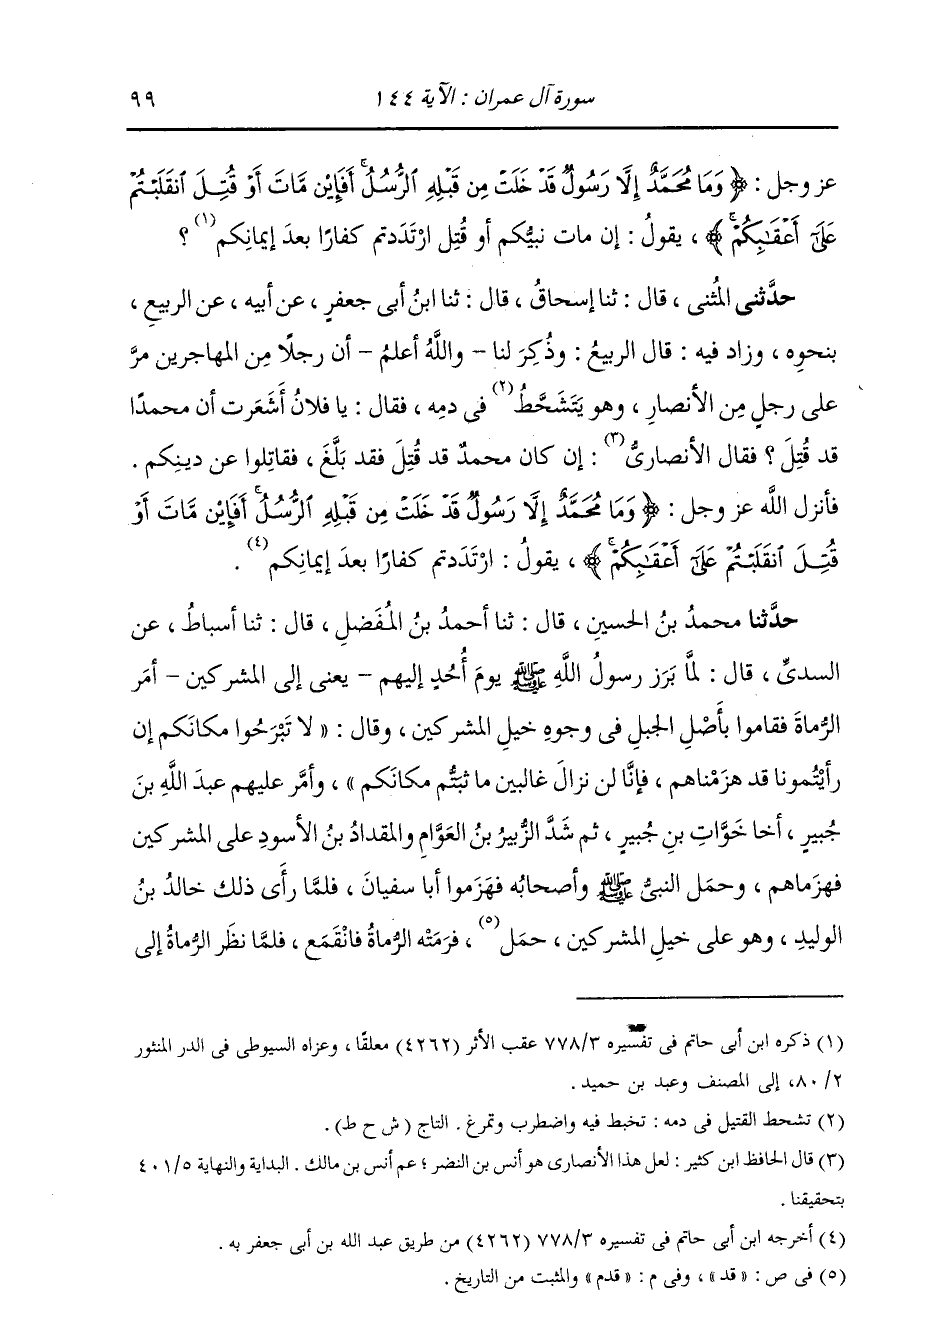 سورة آل عمران : الآية ١٤٤ ٩٩
عز وجل : ﴿ وَمَا مُحَمَّدٌ إِلَّا رَسُولٌ قَدْ خَلَتْ مِن قَبْلِهِ ٱلرُّسُلُ أَفَإِيْن مَّاتَ أَوْ قُتِلَ ٱنقَلَبْتُمْ
عَلَىٰٓ أَعْقَـٰبِكُمْ ﴾ ، يقولُ : إن مات نبيُّكم أو قُتِل ارْتَدَدتم كفارًا بعدَ إيمانِكم(١) ؟
حدَّثنى المُثنى ، قال : ثنا إسحاقُ ، قال : ثنا ابنُ أبى جعفرٍ ، عن أبيه ، عن الربيعِ ،
بنحوِه ، وزاد فيه : قال الربيعُ : وذُكِرَ لنا - واللَّهُ أعلمُ - أن رجلًا مِن المهاجرين مرَّ
على رجلٍ مِن الأنصارِ ، وهو يَتَشَحَّطُ(٢) فى دمِه ، فقال : يا فلانُ أَشَعَرت أن محمدًا
قد قُتِلَ ؟ فقال الأنصارىُّ(٣) : إن كان محمدٌ قد قُتِلَ فقد بَلَّغَ ، فقاتِلوا عن دينِكم .
فأنزل اللَّه عز وجل : ﴿ وَمَا مُحَمَّدٌ إِلَّا رَسُولٌ قَدْ خَلَتْ مِن قَبْلِهِ ٱلرُّسُلُ أَفَإِيْن مَّاتَ أَوْ
قُتِلَ ٱنقَلَبْتُمْ عَلَىٰٓ أَعْقَـٰبِكُمْ ﴾ ، يقولُ : ارْتَدَدتم كفارًا بعدَ إيمانِكم(٤) .
حدَّثنا محمدُ بنُ الحسينِ ، قال : ثنا أحمدُ بنُ المُفَضلِ ، قال : ثنا أسباطُ ، عن
السدىِّ ، قال : لمَّا بَرَز رسولُ اللَّهِ ﷺ يومَ أُحُدٍ إليهم - يعنى إلى المشركين - أمَر
الرُّماةَ فقاموا بأَصْلِ الجبلِ فى وجوهِ خيلِ المشركين ، وقال : « لا تَبْرَحُوا مكانَكم إن
رأَيْتُمونا قد هزَمْناهم ، فإنَّا لن نزالَ غالبين ما ثبتُّم مكانَكم » ، وأمَّر عليهم عبدَ اللَّهِ بنَ
جُبيرٍ ، أخا خَوَّاتِ بنِ جُبيرٍ ، ثم شَدَّ الزُّبيرُ بنُ العَوَّامِ والمقدادُ بنُ الأسودِ على المشركين
فهزَماهم ، وحمَل النبىُّ ﷺ وأصحابُه فهَزَموا أبا سفيانَ ، فلمَّا رأَى ذلك خالدُ بنُ
الوليدِ ، وهو على خيلِ المشركين ، حمَل(٥) ، فرَمَتْه الرُّماةُ فانْقَمَع ، فلمَّا نظَر الرُّماةُ إلى
(١) ذكره ابن أبى حاتم فى تفسيره ٧٧٨/٣ عقب الأثر (٤٢٦٢) معلقًا ، وعزاه السيوطى فى الدر المنثور
٨٠/٢، إلى المصنف وعبد بن حميد .
(٢) تشحط القتيل فى دمه : تخبط فيه واضطرب وتمرغ . التاج ( ش ح ط ) .
(٣) قال الحافظ ابن كثير : لعل هذا الأنصارى هو أنس بن النضر ؛ عم أنس بن مالك . البداية والنهاية ٤٠١/٥
بتحقيقنا .
(٤) أخرجه ابن أبى حاتم فى تفسيره ٧٧٨/٣ (٤٢٦٢) من طريق عبد الله بن أبى جعفر به .
(٥) فى ص : « قد » ، وفى م : « قدم » والمثبت من التاريخ .